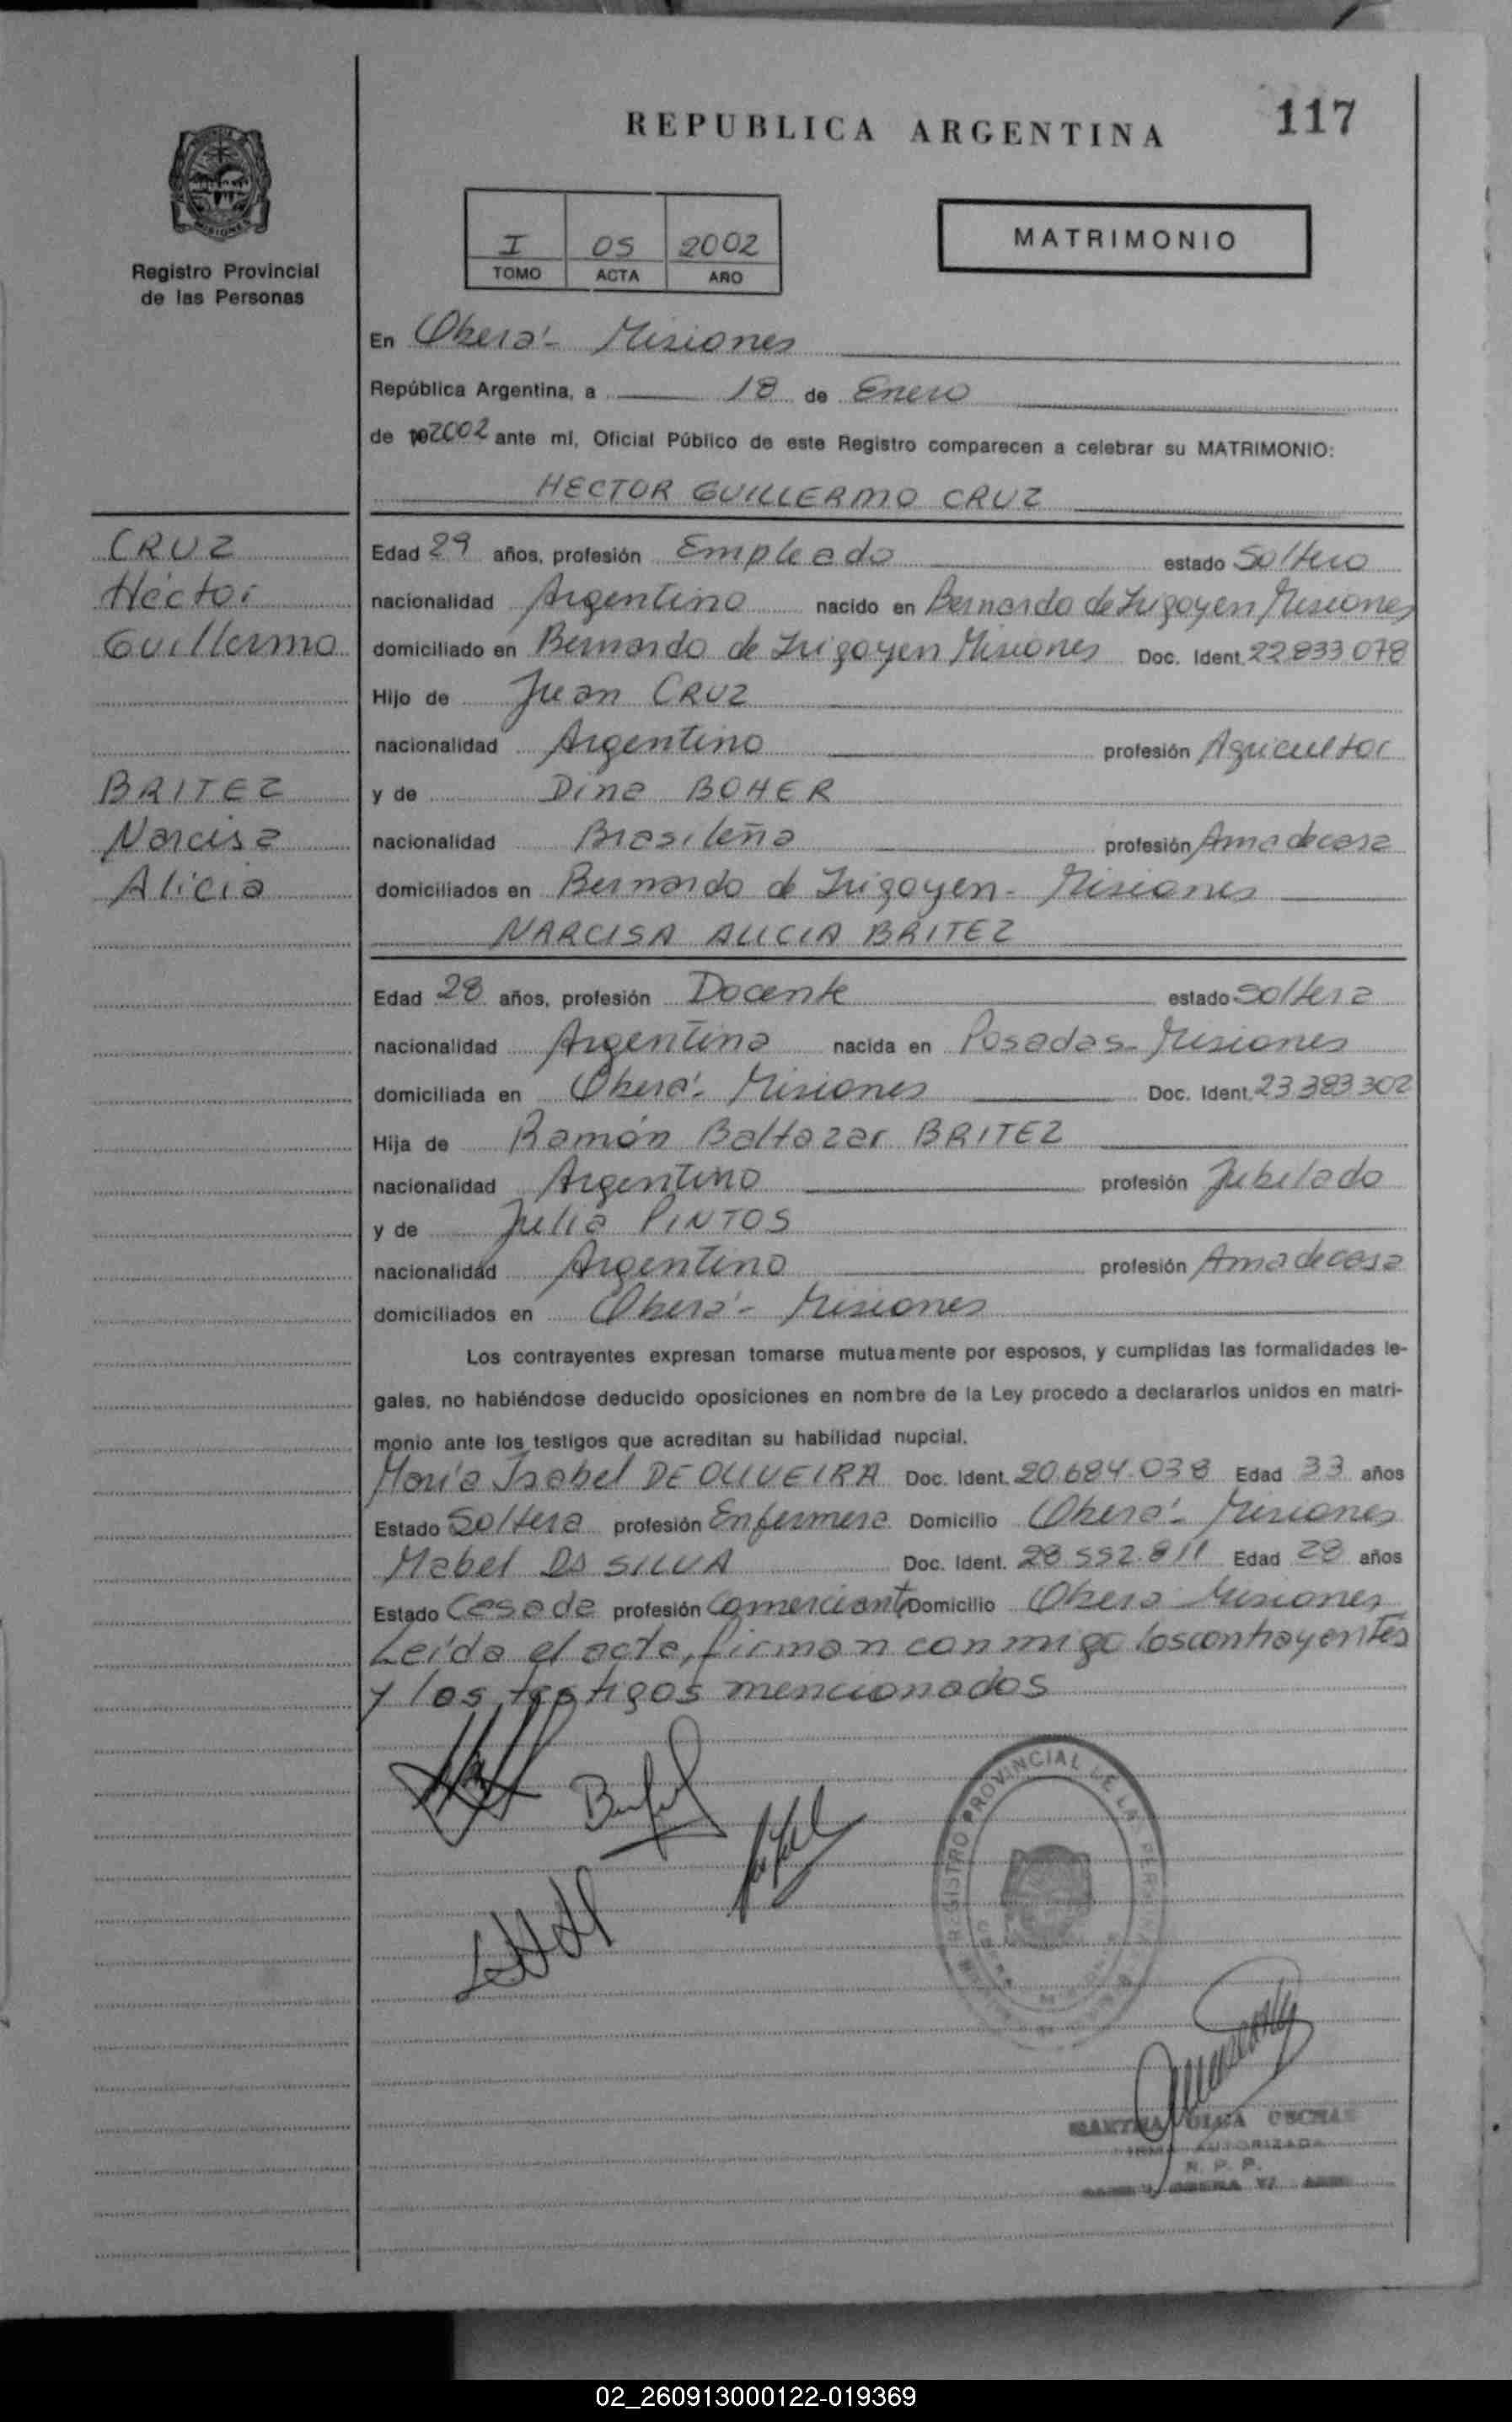 REPUBLICA ARGENTINA
117
MISIONES
Registro Provincial
de las Personas
I 05 2002
TOMO ACTA AÑO
MATRIMONIO
En Oberá - Misiones
República Argentina, a 18 de Enero
de 2002 ante mí, Oficial Público de este Registro comparecen a celebrar su MATRIMONIO:
HECTOR GUILLERMO CRUZ
CRUZ
Héctor
Guillermo
BRITEZ
Narcisa
Alicia
Edad 29 años, profesión Empleado estado Soltero
nacionalidad Argentino nacido en Bernardo de Irigoyen Misiones
domiciliado en Bernardo de Irigoyen Misiones Doc. Ident. 22.833.078
Hijo de Juan CRUZ
nacionalidad Argentino profesión Agricultor
y de Dina BOHER
nacionalidad Brasileña profesión Ama de casa
domiciliados en Bernardo de Irigoyen - Misiones
NARCISA ALICIA BRITEZ
Edad 28 años, profesión Docente estado Soltera
nacionalidad Argentina nacida en Posadas - Misiones
domiciliada en Oberá - Misiones Doc. Ident. 23.383.302
Hija de Ramón Baltazar BRITEZ
nacionalidad Argentino profesión Jubilado
y de Julia PINTOS
nacionalidad Argentina profesión Ama de casa
domiciliados en Oberá - Misiones
Los contrayentes expresan tomarse mutuamente por esposos, y cumplidas las formalidades le-
gales, no habiéndose deducido oposiciones en nombre de la Ley procedo a declararlos unidos en matri-
monio ante los testigos que acreditan su habilidad nupcial.
María Isabel DE OLIVEIRA Doc. Ident. 20.684.038 Edad 33 años
Estado Soltera profesión Enfermera Domicilio Oberá - Misiones
Mabel DA SILVA Doc. Ident. 28.552.811 Edad 28 años
Estado Casada profesión Comerciante Domicilio Oberá Misiones
Leída el acta, firman conmigo los contrayentes
y los testigos mencionados
REGISTRO PROVINCIAL DE LA PERSONA
MARTHA OLGA
FIRMA AUTORIZADA
R. P. P.
02_260913000122-019369